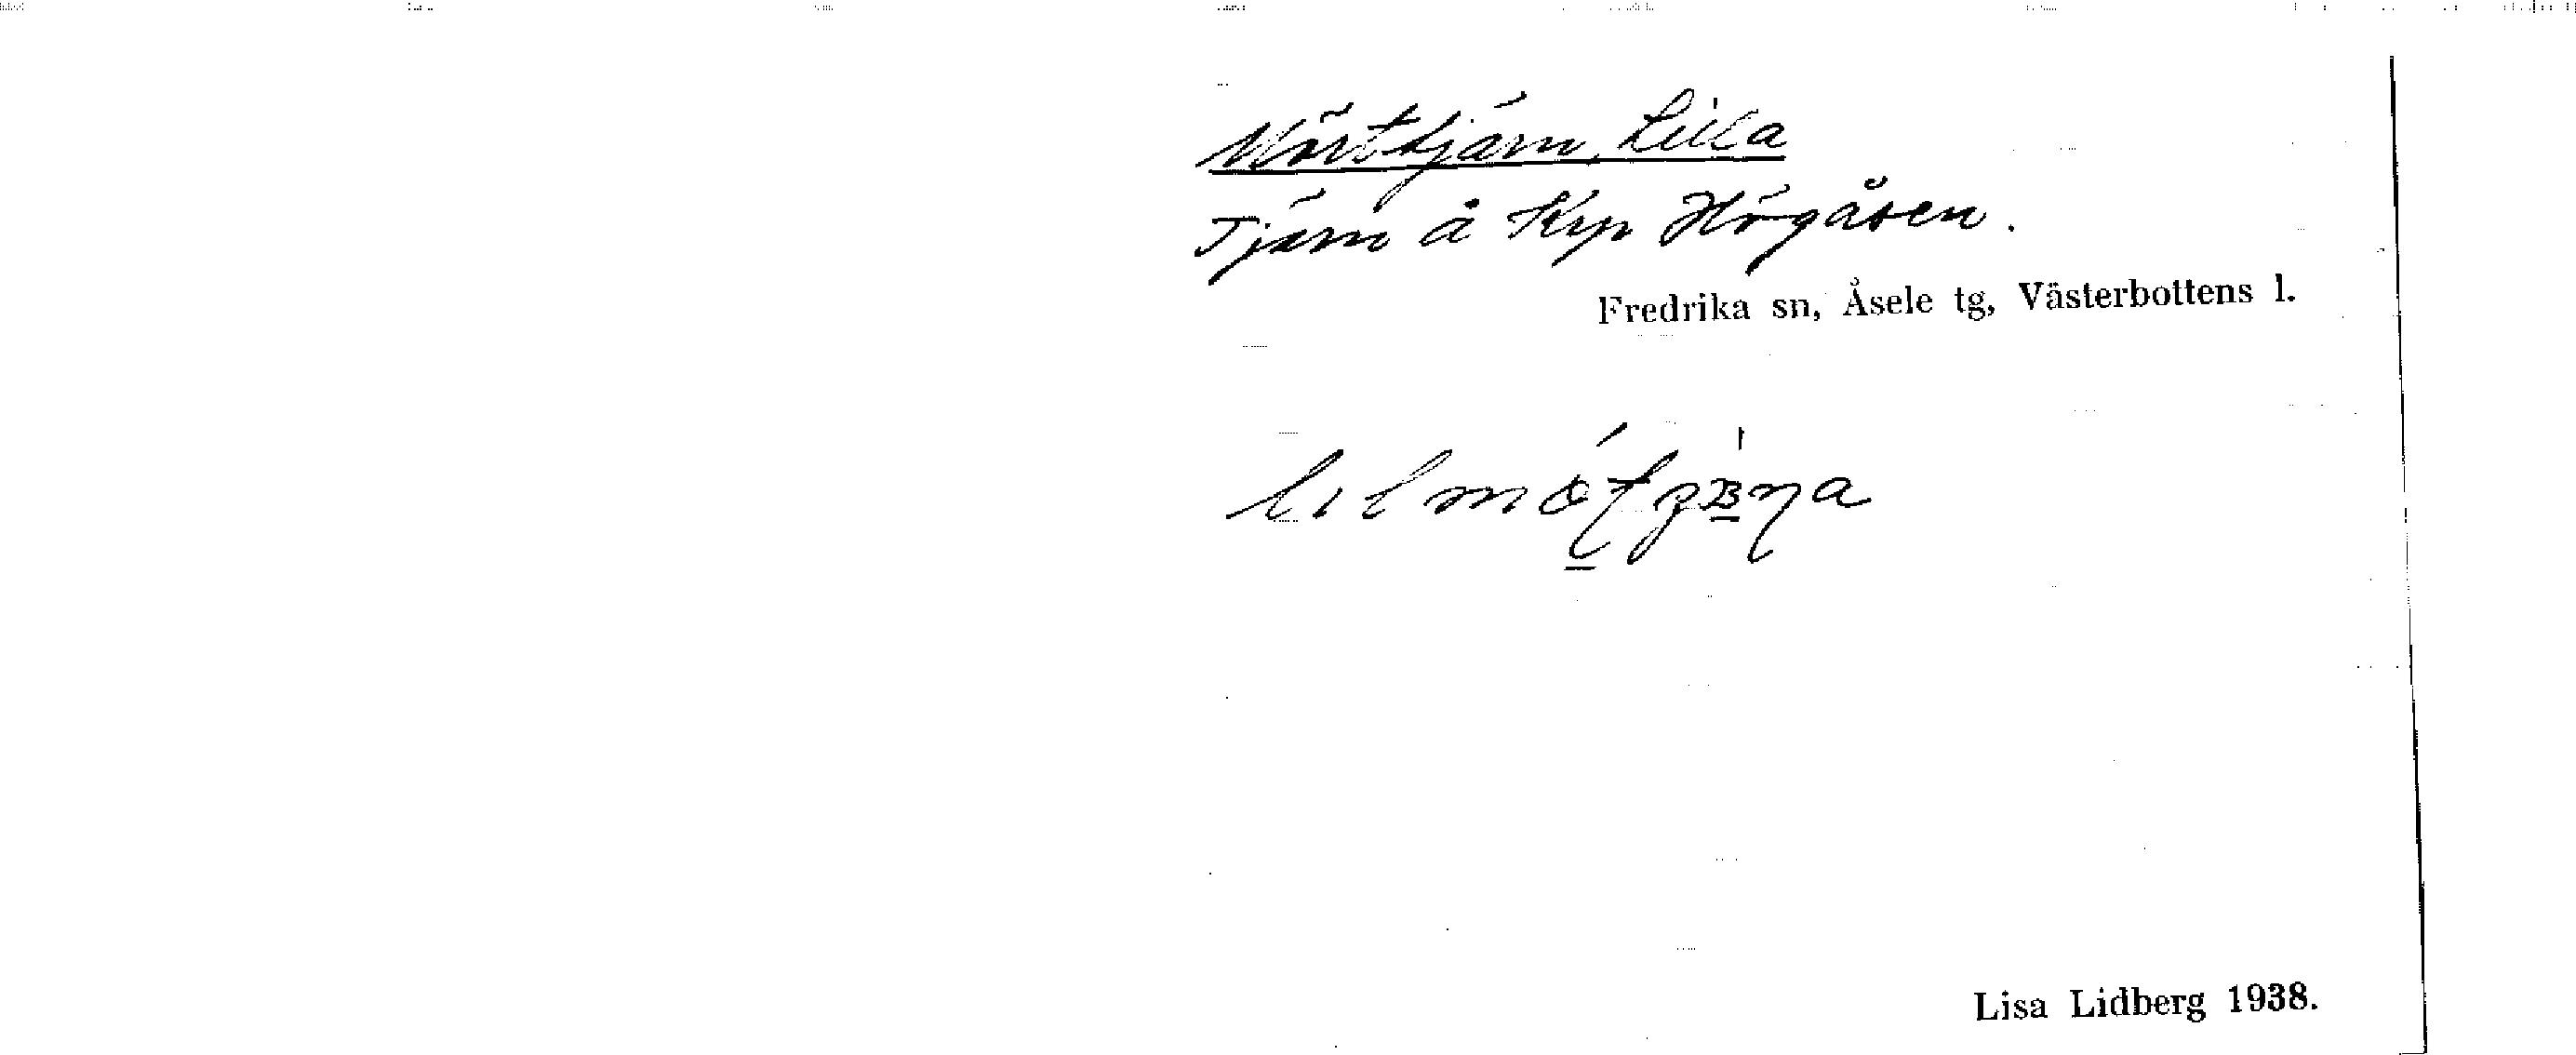 Mörttjärn, Lilla
Tjärn å Krp Högåsen.
Fredrika sn, Åsele tg, Västerbottens l.
Lisa Lidberg 1938.